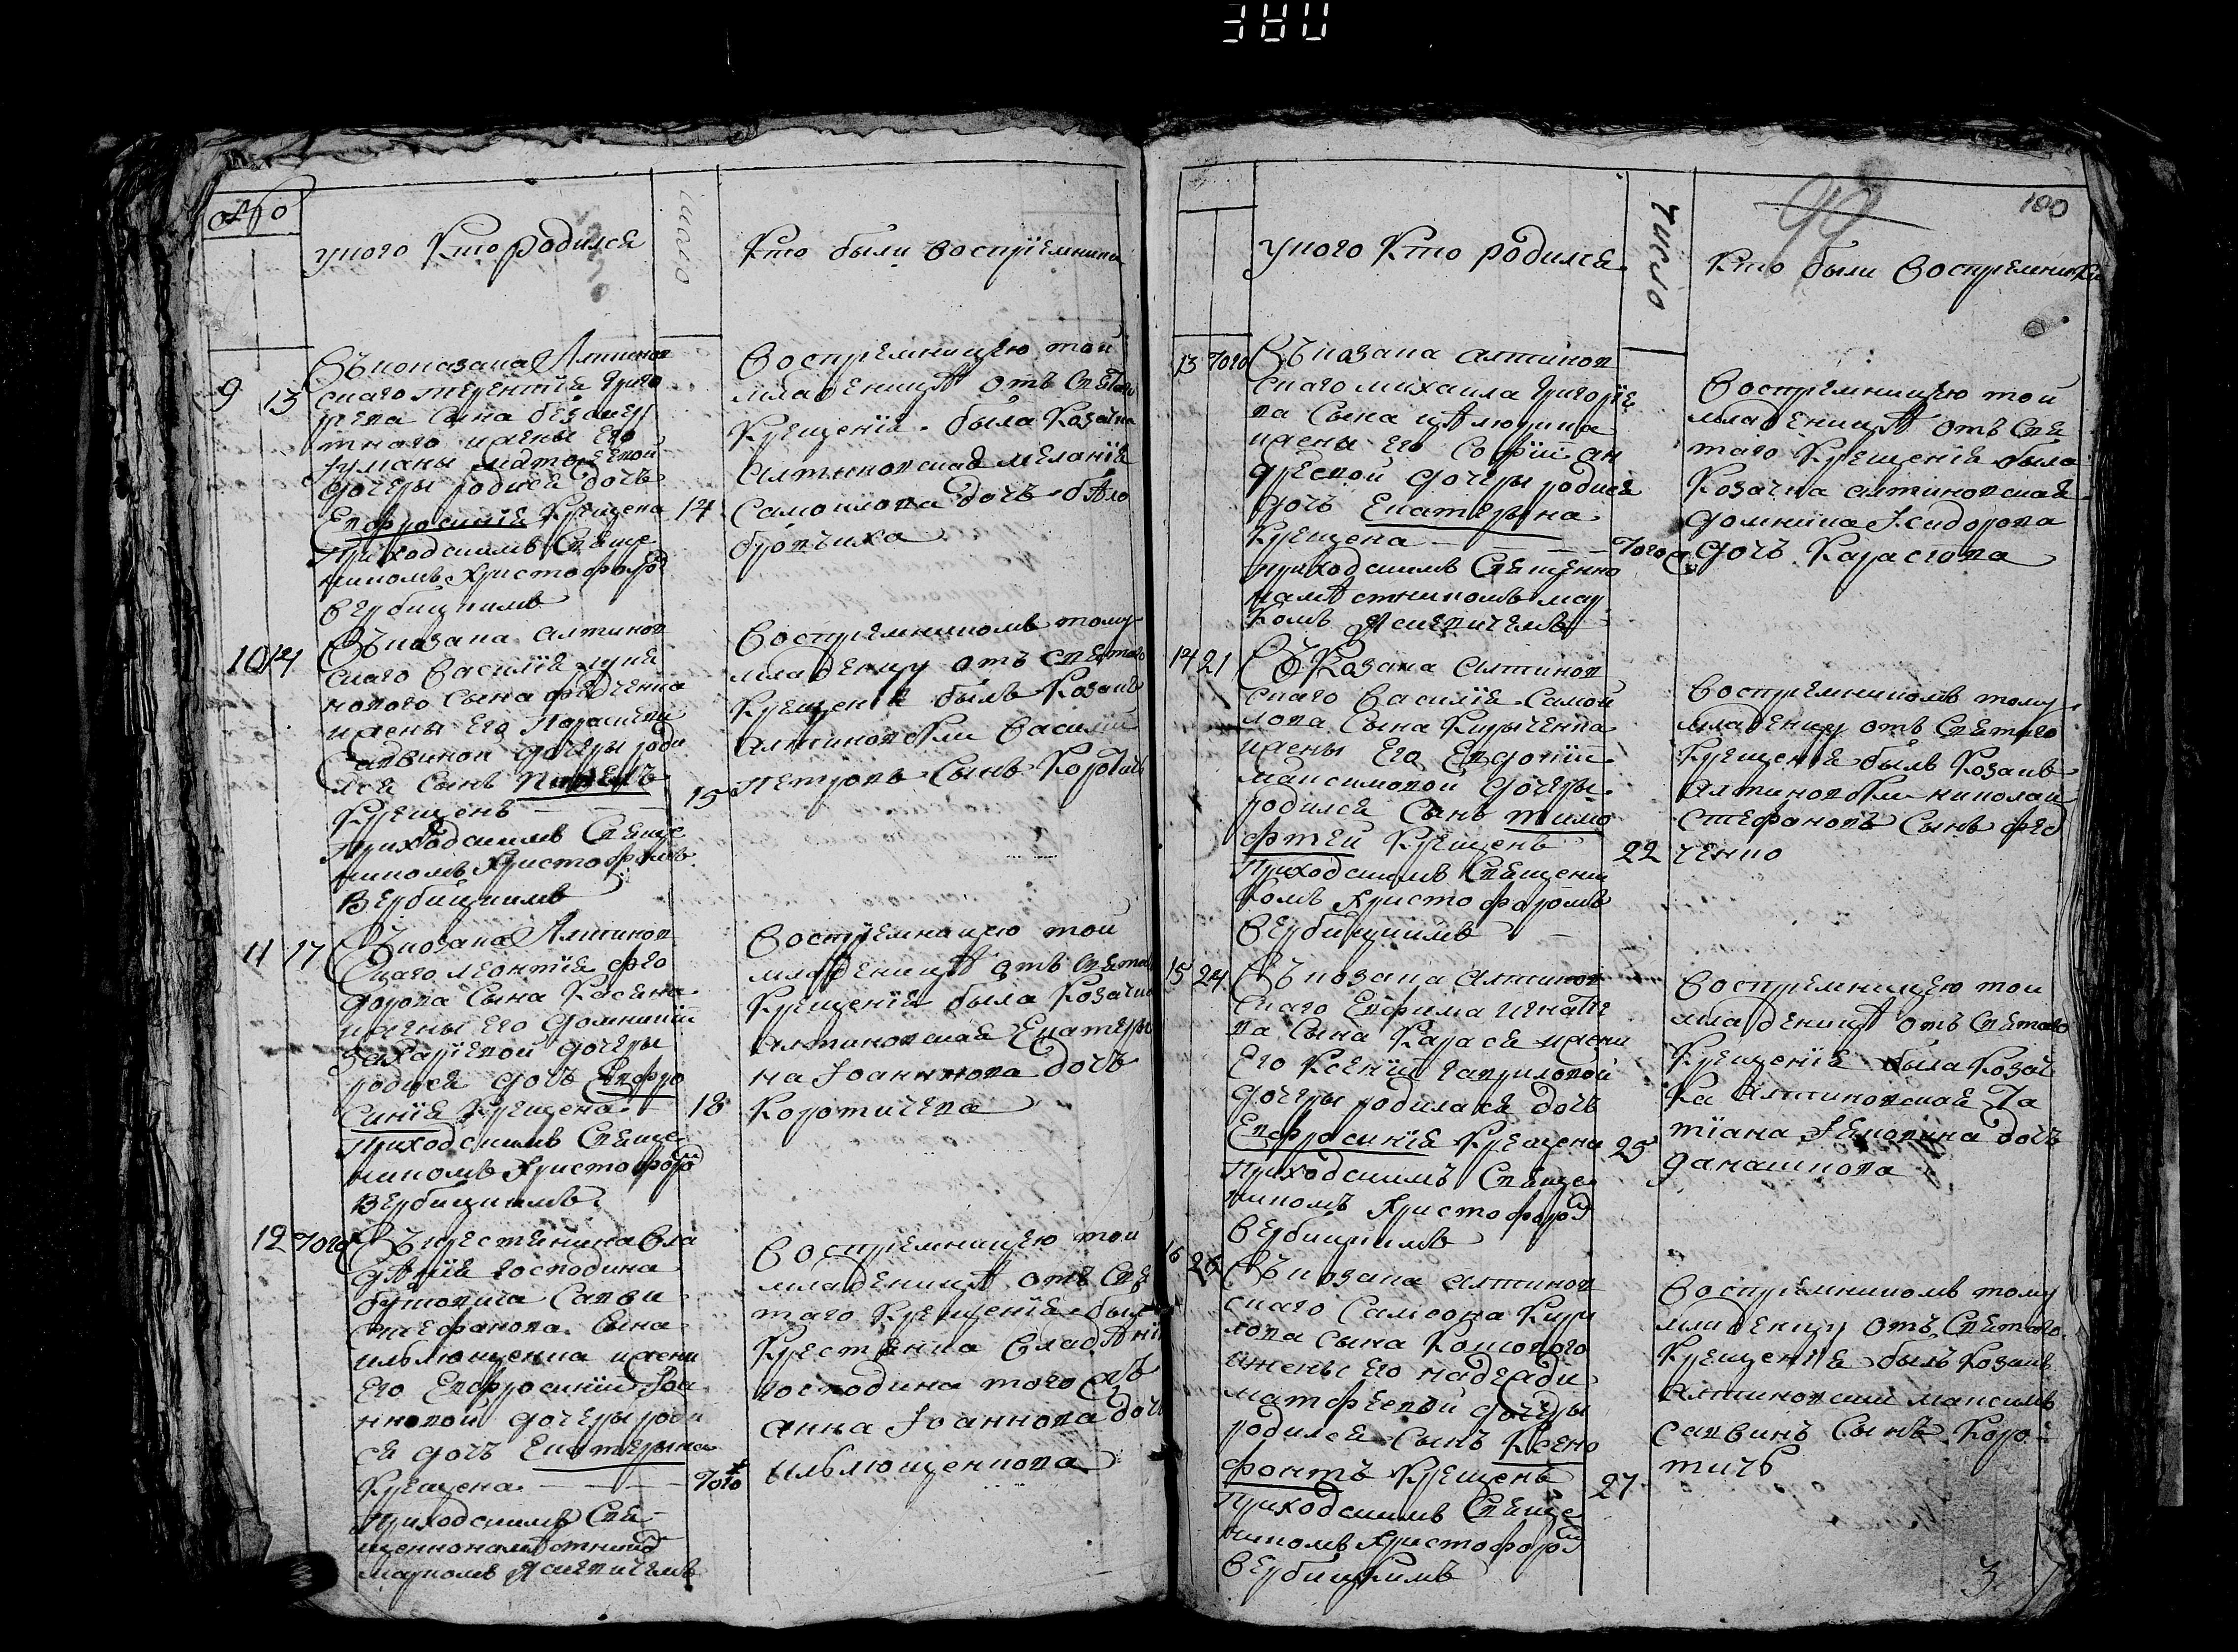 380
№
у кого Кто родился
число
Кто были восприемники
9 13
Въ козака Алтинов
скаго Терентия Григо
риева Сына безсмер
тного и жены Его
Иулианы
дочеры родися дочь
Евфросиния Крещена 14
Приходскимъ Свяще
никомъ Христофоромъ
Вербицкимъ
Восприемницею той
младеницѣ отъ Святаго
Крещения была Козачка
Алтиновская Мелания
Самойлова дочь
10 14
Въ козака Алтинов
скаго Василия
нового Сына Федченка
и жены Его Параскеви
Саввиной дочеры роди
лся Сынъ
Крещенъ 15
Приходскимъ Свяще
никомъ Христофоромъ
Вербицкимъ
Восприемникомъ тому
младенцу отъ Святаго
Крещения былъ Козакъ
Алтиновский Василий
Петровъ Сынъ Коротичъ
11 17
Въ козака Алтинов
скаго Леонтия Фео
дорова Сына Касяна
и жены Его Домникии
Захариевой дочеры
родися дочь Евфро
синия Крещена 18
Приходскимъ Свяще
никомъ Христофоромъ
Вербицкимъ
Восприемницею той
младеницѣ отъ Святаго
Крещения была Козачка
Алтиновская Екатеры
на Иоаннова дочь
Коротичева
12 Того
Въ крестянина вла
дѣния господина
Савви
Стефанова Сына
Ильюшенка и жены
Его Евфросинии Иоа
нновой дочеры роди
ся дочь Екатерына
Крещена Того
Приходскимъ Свя
щеннонамѣстником
Марком Ясневичемъ
Восприемницею той
младеницѣ отъ Свя
таго Крещения была
Крестянка владѣния
господина того
Анна Иоаннова дочь
Ильюшенкова
99
100
у кого Кто родился
Число
Кто были Восприемники
13 Того
Въ козака Алтинов
скаго Михаила Григорие
ва Сына Цѣлюрика
и жены Его Софии Ан
дреевой дочеры родися
дочь Екатерына
Крещена Того
Приходскимъ Священно
намѣстникомъ Мар
комъ Ясневичемъ
Восприемницею той
младеницѣ отъ Свя
таго Крещения была
Козачка Алтиновская
Домникиа Исидорова
дочь Карасіова
14 21
Въ Козака Алтинов
скаго Василия Самой
лова Сына Кириченка
и жены Его Евдокии
Максимовой дочеры
родился Сынъ Тимо
фтей Крещенъ 22
Приходскимъ Священни
комъ Христофоромъ
Вербицкимъ
Восприемникомъ тому
младенцу отъ Святаго
Крещения былъ Козакъ
Алтиновский Николай
Стефановъ Сынъ Фед
ченко
15 24
Въ козака Алтинов
скаго Евфима Игнатие
ва Сына Карася и жены
Его Ксении Гавриловой
дочеры родилася дочь
Евфросиния Крещена 25
Приходскимъ Свяще
никомъ Христофором
Вербицкимъ
Восприемницею той
младеницѣ отъ Святаго
Крещения была Козач
ка Алтиновская Та
тiана Иаковлева дочь
16 26
Въ козака Алтинов
скаго Самсона Кири
лова Сына
и жены Его Надежди
Матфеевой дочеры
родился Сынъ Ксено
фонтъ Крещенъ 27
Приходскимъ Свяще
никомъ Христофором
Вербицкимъ
Восприемникомъ тому
младенцу отъ Святаго
Крещения былъ Козакъ
Алтиновский Максимъ
Саввинъ Сынъ Коро
тичъ
3